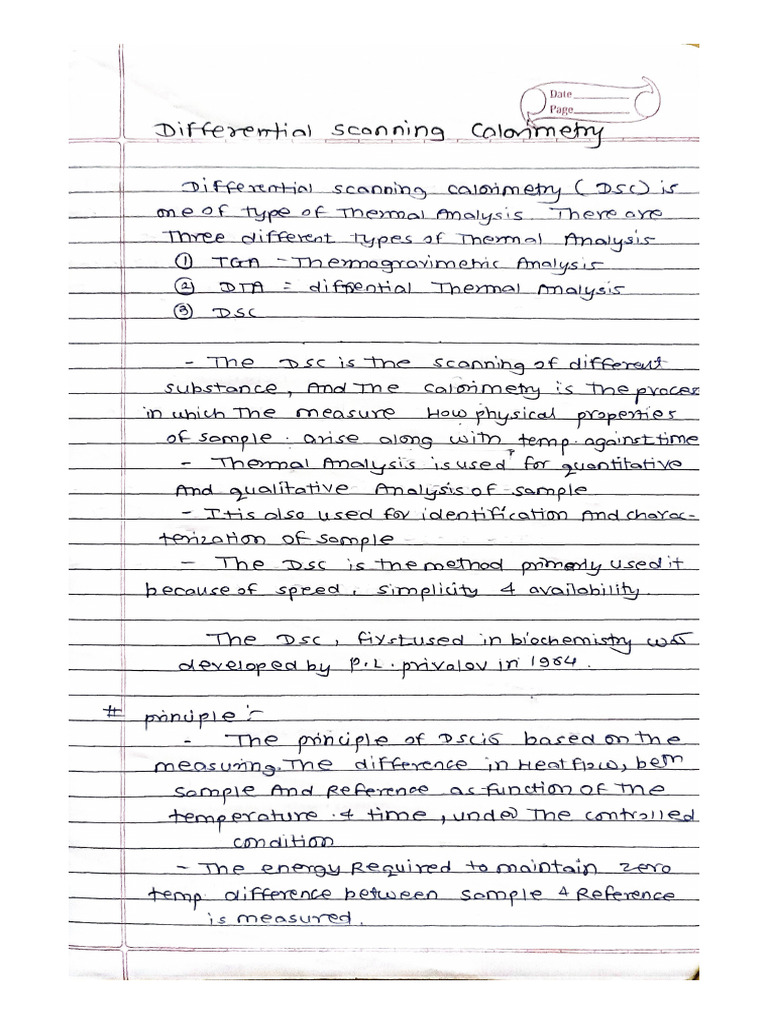 Date
Page
Differential scanning Calorimetry
Differential scanning calorimetry (DSC) is
one of type of Thermal Analysis. There are
Three different types of Thermal Analysis
① TGA - Thermogravimetric Analysis
② DTA = diffential Thermal Analysis
③ DSC
- The DSC is the scanning of different
substance, And The Calorimetry is The proces
in which The measure How physical properties
of sample. arise along with temp. against time
- Thermal Analysis is used for quantitative
And qualitative Analysis of sample
- It is also used for identification And charac-
terization of sample
- The DSC is the method primarly used it
because of speed, simplicity & availability.
The DSC, first used in biochemistry was
developed by P.L. privalov in 1964.
# principle :-
- The principle of DSC is based on the
measuring. The difference in Heat flow, betn
sample And Reference as function of the
temperature & time, under The controlled
condition
- The energy Required to maintain zero
temp. difference between sample & Reference
is measured.